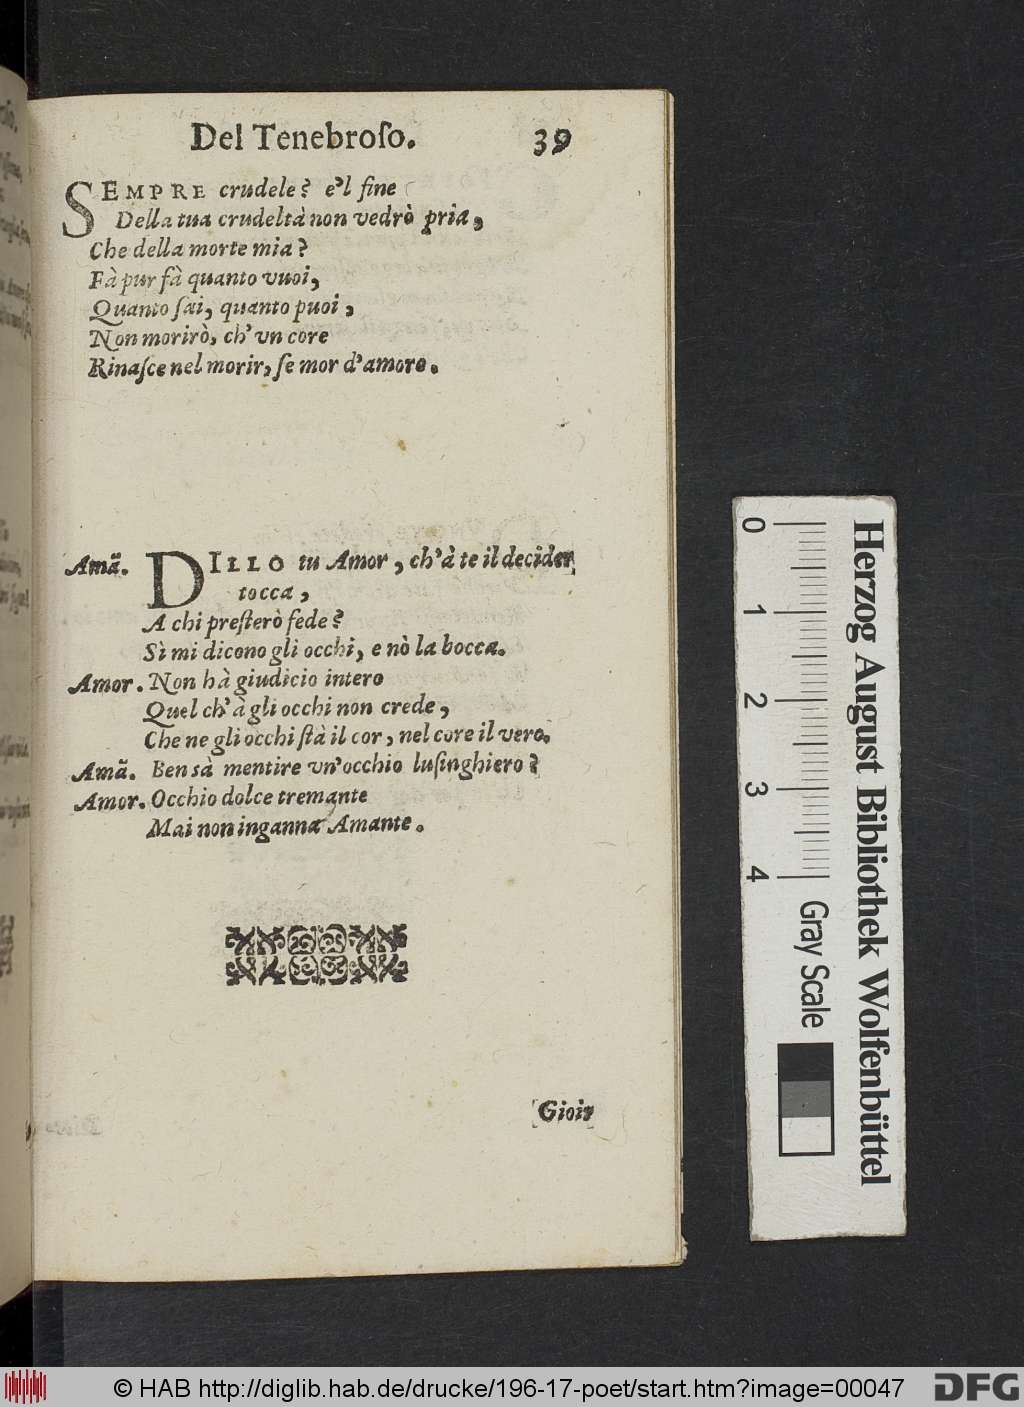 Del Tenebroſo. 39
SEMPRE crudele? e'l fine
Della tua crudeltà non vedrò pria,
Che della morte mia?
Fà pur fà quanto vuoi,
Quanto ſai, quanto puoi,
Non morirò, ch'vn core
Rinaſce nel morir, ſe mor d'amore.
Amã. DILLO tu Amor, ch'à te il decider
tocca,
A chi preſterò fede?
Sì mi dicono gli occhi, e nò la bocca.
Amor. Non hà giudicio intero
Quel ch'à gli occhi non crede,
Che ne gli occhi ſtà il cor, nel core il vero.
Amã. Ben sà mentire vn'occhio luſinghiero?
Amor. Occhio dolce tremante
Mai non inganna Amante.
Gioir
Herzog August Bibliothek Wolfenbüttel
0 1 2 3 4 Gray Scale
© HAB http://diglib.hab.de/drucke/196-17-poet/start.htm?image=00047
DFG